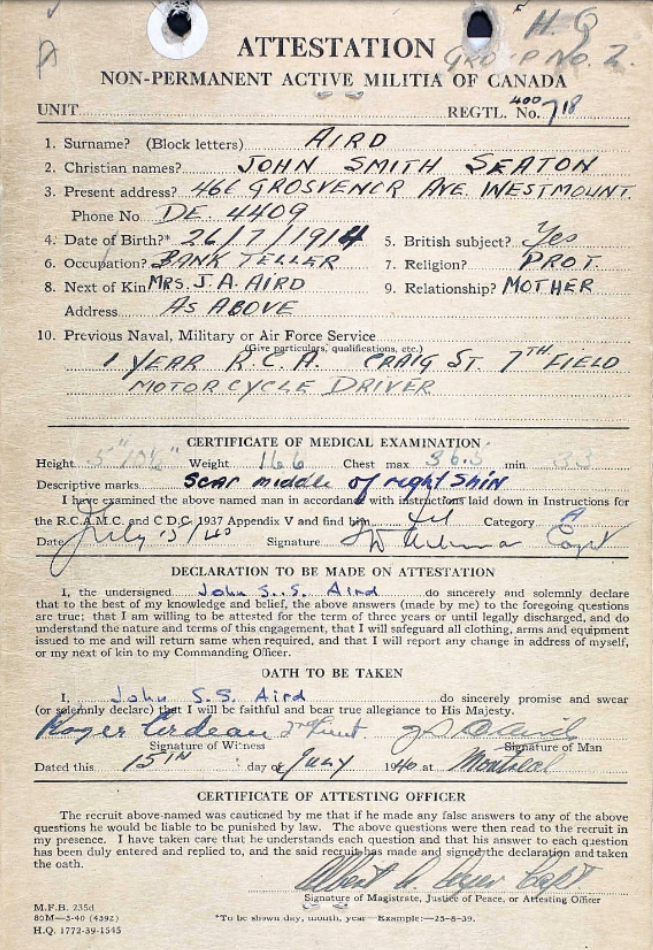 H.Q
GROUP NO. 2.
A
ATTESTATION
NON-PERMANENT ACTIVE MILITIA OF CANADA
UNIT REGTL. No. 400 718
1. Surname? (Block letters) AIRD
2. Christian names? JOHN SMITH SEATON
3. Present address? 466 GROSVENOR AVE. WESTMOUNT.
Phone No. DE. 4409
4. Date of Birth?* 26/7/1914 5. British subject? Yes
6. Occupation? BANK TELLER 7. Religion? PROT.
8. Next of Kin MRS. J. A. AIRD 9. Relationship? MOTHER
Address AS ABOVE
10. Previous Naval, Military or Air Force Service
(Give particulars, qualifications, etc.)
1 YEAR R.C.A. CRAIG ST. 7TH FIELD
MOTORCYCLE DRIVER
CERTIFICATE OF MEDICAL EXAMINATION
Height 5" 10½" Weight 166 Chest max 36.5 min 33
Descriptive marks Scar middle of right shin
I have examined the above named man in accordance with instructions laid down in Instructions for
the R.C.A.M.C. and C.D.C. 1937 Appendix V and find him fit Category A
Date July 15/40 Signature Capt
DECLARATION TO BE MADE ON ATTESTATION
I, the undersigned John S. S. Aird do sincerely and solemnly declare
that to the best of my knowledge and belief, the above answers (made by me) to the foregoing questions
are true; that I am willing to be attested for the term of three years or until legally discharged, and do
understand the nature and terms of this engagement, that I will safeguard all clothing, arms and equipment
issued to me and will return same when required, and that I will report any change in address of myself,
or my next of kin to my Commanding Officer.
OATH TO BE TAKEN
I, John S. S. Aird do sincerely promise and swear
(or solemnly declare) that I will be faithful and bear true allegiance to His Majesty.
Roger 2nd Lieut.
Signature of Witness Signature of Man
Dated this 15TH day of JULY 1940 at Montreal
CERTIFICATE OF ATTESTING OFFICER
The recruit above-named was cautioned by me that if he made any false answers to any of the above
questions he would be liable to be punished by law. The above questions were then read to the recruit in
my presence. I have taken care that he understands each question and that his answer to each question
has been duly entered and replied to, and the said recruit has made and signed the declaration and taken
the oath.
Capt
Signature of Magistrate, Justice of Peace, or Attesting Officer
M.F.B. 235d
80M—3-40 (4392)
H.Q. 1772-39-1545
*To be shown day, month, year—Example:—25-8-39.